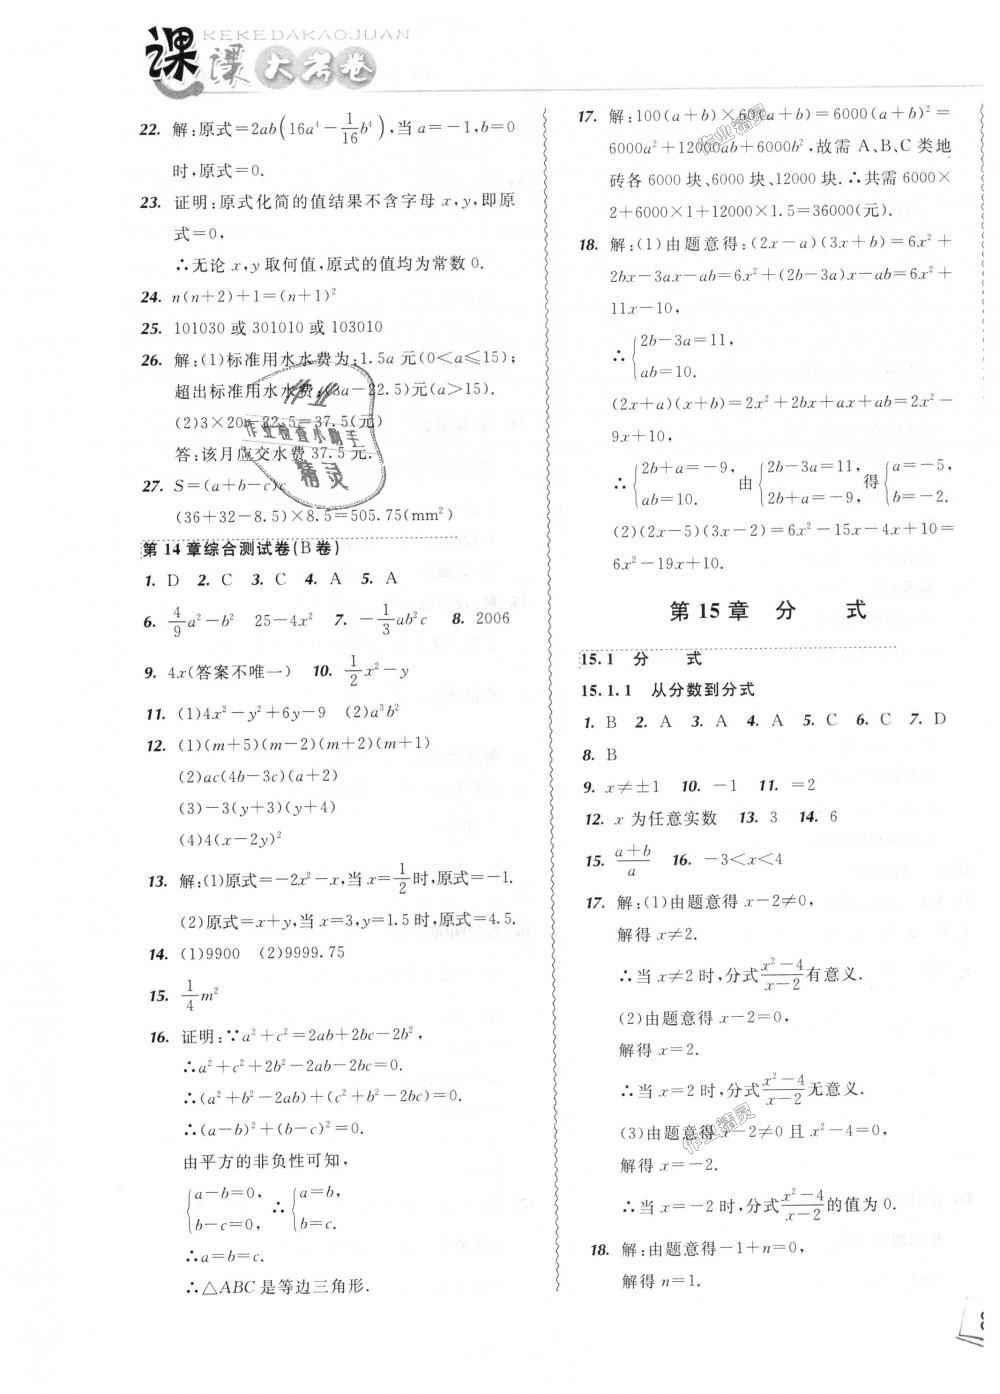 KEKEDAKAOJUAN
课课大考卷
22. 解:原式=2ab(16a⁴-1/16b⁴),当 a=-1,b=0
时,原式=0.
23. 证明:原式化简的值结果不含字母 x,y,即原
式=0,
∴无论 x,y 取何值,原式的值均为常数 0.
24. n(n+2)+1=(n+1)²
25. 101030 或 301010 或 103010
26. 解:(1)标准用水水费为:1.5a 元(0<a≤15);
超出标准用水水费:(3a-22.5)元(a>15).
(2)3×20-22.5=37.5(元)
答:该月应交水费 37.5 元.
27. S=(a+b-c)c
(36+32-8.5)×8.5=505.75(mm²)
第 14 章综合测试卷(B 卷)
1. D 2. C 3. C 4. A 5. A
6. 4/9a²-b² 25-4x² 7. -1/3ab²c 8. 2006
9. 4x(答案不唯一) 10. 1/2x²-y
11. (1)4x²-y²+6y-9 (2)a³b²
12. (1)(m+5)(m-2)(m+2)(m+1)
(2)ac(4b-3c)(a+2)
(3)-3(y+3)(y+4)
(4)4(x-2y)²
13. 解:(1)原式=-2x²-x,当 x=1/2时,原式=-1.
(2)原式=x+y,当 x=3,y=1.5 时,原式=4.5.
14. (1)9900 (2)9999.75
15. 1/4m²
16. 证明:∵a²+c²=2ab+2bc-2b²,
∴a²+c²+2b²-2ab-2bc=0.
∴(a²+b²-2ab)+(c²+b²-2bc)=0.
∴(a-b)²+(b-c)²=0.
由平方的非负性可知,
{a-b=0, ∴ {a=b,
b-c=0, b=c.
∴a=b=c.
∴△ABC 是等边三角形.
17. 解:100(a+b)×60(a+b)=6000(a+b)²=
6000a²+12000ab+6000b²,故需 A、B、C 类地
砖各 6000 块、6000 块、12000 块.∴共需 6000×
2+6000×1+12000×1.5=36000(元).
18. 解:(1)由题意得:(2x-a)(3x+b)=6x²+
2bx-3ax-ab=6x²+(2b-3a)x-ab=6x²+
11x-10,
∴{2b-3a=11,
ab=10.
(2x+a)(x+b)=2x²+2bx+ax+ab=2x²-
9x+10,
∴{2b+a=-9, 由{2b-3a=11, 得{a=-5,
ab=10. 2b+a=-9, b=-2.
(2)(2x-5)(3x-2)=6x²-15x-4x+10=
6x²-19x+10.
第 15 章 分 式
15.1 分 式
15.1.1 从分数到分式
1. B 2. A 3. A 4. A 5. C 6. C 7. D
8. B
9. x≠±1 10. -1 11. =2
12. x 为任意实数 13. 3 14. 6
15. (a+b)/a 16. -3<x<4
17. 解:(1)由题意得 x-2≠0,
解得 x≠2.
∴当 x≠2 时,分式(x²-4)/(x-2)有意义.
(2)由题意得 x-2=0,
解得 x=2.
∴当 x=2 时,分式(x²-4)/(x-2)无意义.
(3)由题意得 x-2≠0 且 x²-4=0,
解得 x=-2.
∴当 x=-2 时,分式(x²-4)/(x-2)的值为 0.
18. 解:由题意得-1+n=0,
解得 n=1.
作业
作业检查小助手
精灵
作业精灵
作业精灵